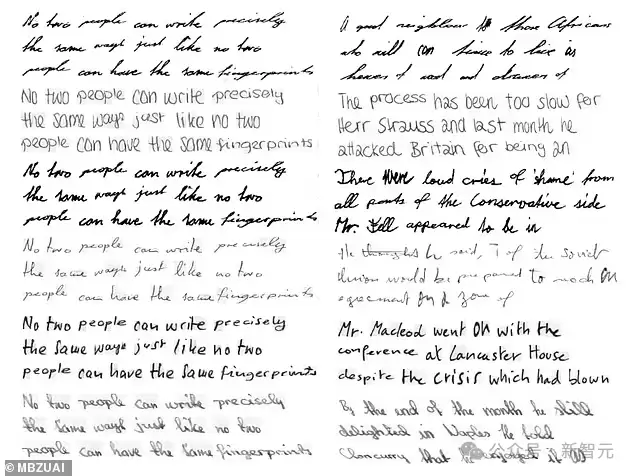 No two people can write precisely
the same ways just like no two
people can have the same fingerprints
No two people can write precisely
the same ways just like no two
people can have the same fingerprints
No two people can write precisely
the same ways just like no two
people can have the same fingerprints
No two people can write precisely
the same ways just like no two
people can have the same fingerprints
No two people can write precisely
the same ways just like no two
people can have the same fingerprints
No two people can write precisely
the same ways just like no two
people can have the same fingerprints
© MBZUAI
A good neighbour those Africans
who will can to live as
hewers of wood and drawers of
The process has been too slow for
Herr Strauss and last month he
attacked Britain for being an
There were loud cries of 'shame' from
all parts of the Conservative side
Mr. appeared to be in
he said, of the Soviet
Union would be prepared to reach an
agreement on a zone of
Mr. Macleod went on with the
conference at Lancaster House
despite the crisis which had blown
By the end of the month he still
delighted in he told
that he enjoyed it
公众号 · 新智元